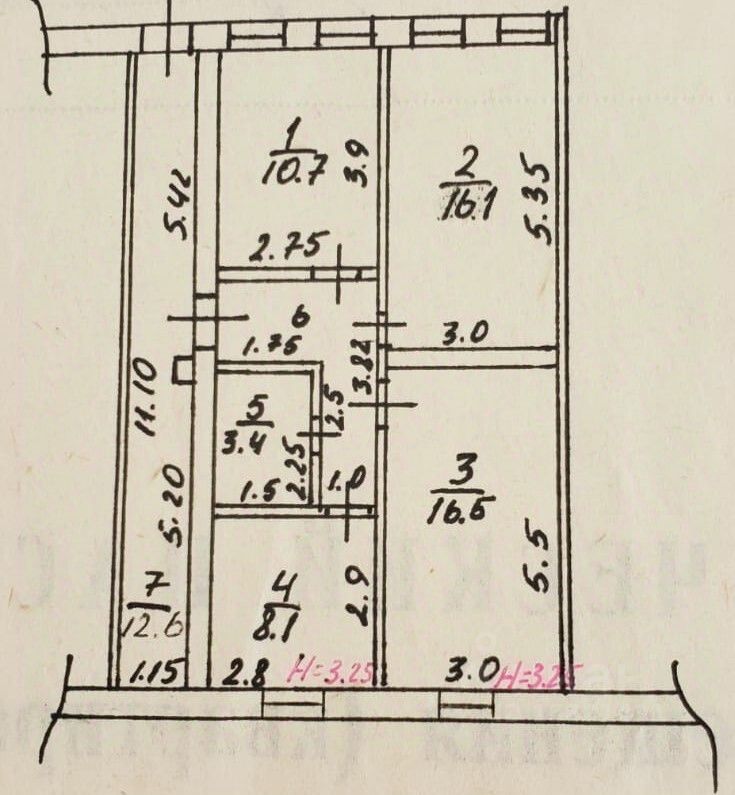 1
10.7
3.9
2.75
2
16.1
5.35
3.0
5.42
6
1.75
3.82
11.10
5
3.4
2.5
2.25
1.5
1.0
3
16.5
5.5
5.20
7
12.6
1.15
4
8.1
2.9
2.8
H=3.25
3.0
H=3.25